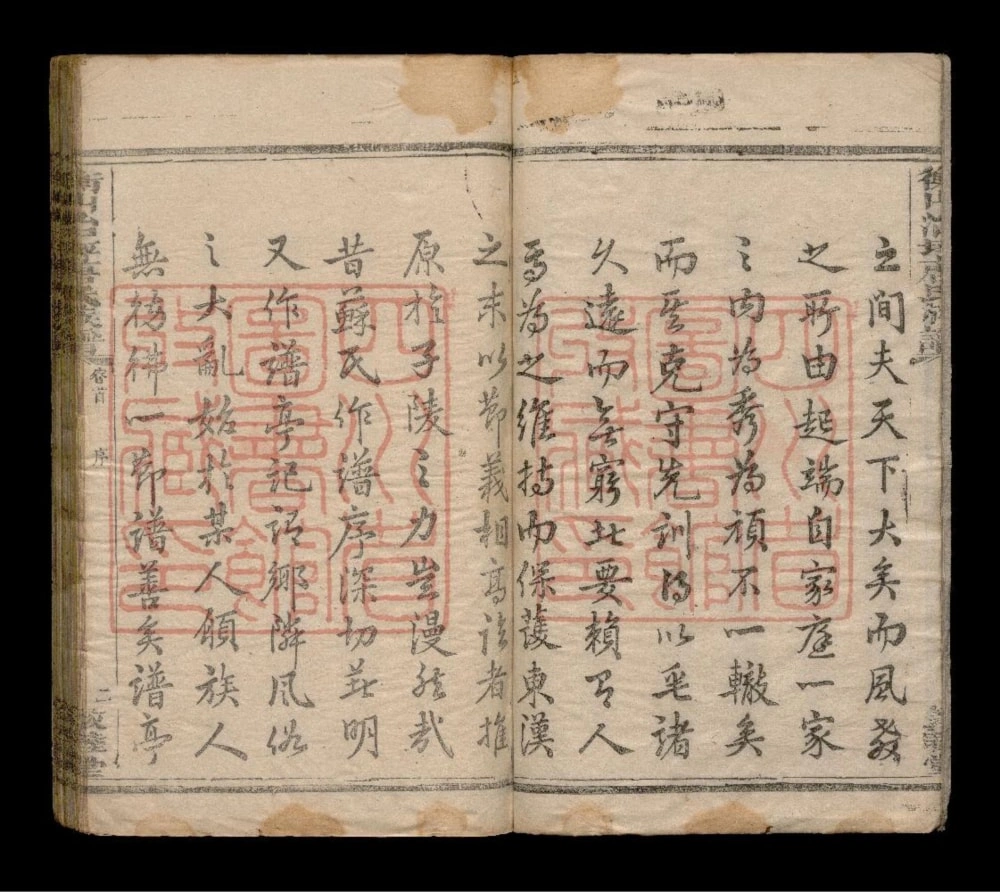 之間夫天下大矣而風教
之所由起端自家庭一家
之內為秀為頑不一轍矣
而至克守先訓得以垂諸
久遠而無窮此要賴有人
焉為之維持而保護東漢
之末以節義相高論者推
原於子陵之力豈漫然哉
昔蘇氏作譜序深切著明
又作譜亭記謂鄉隣風俗
之大亂始於某人傾族人
無彷彿一節譜善矣譜亭
卷首
序
二
堂